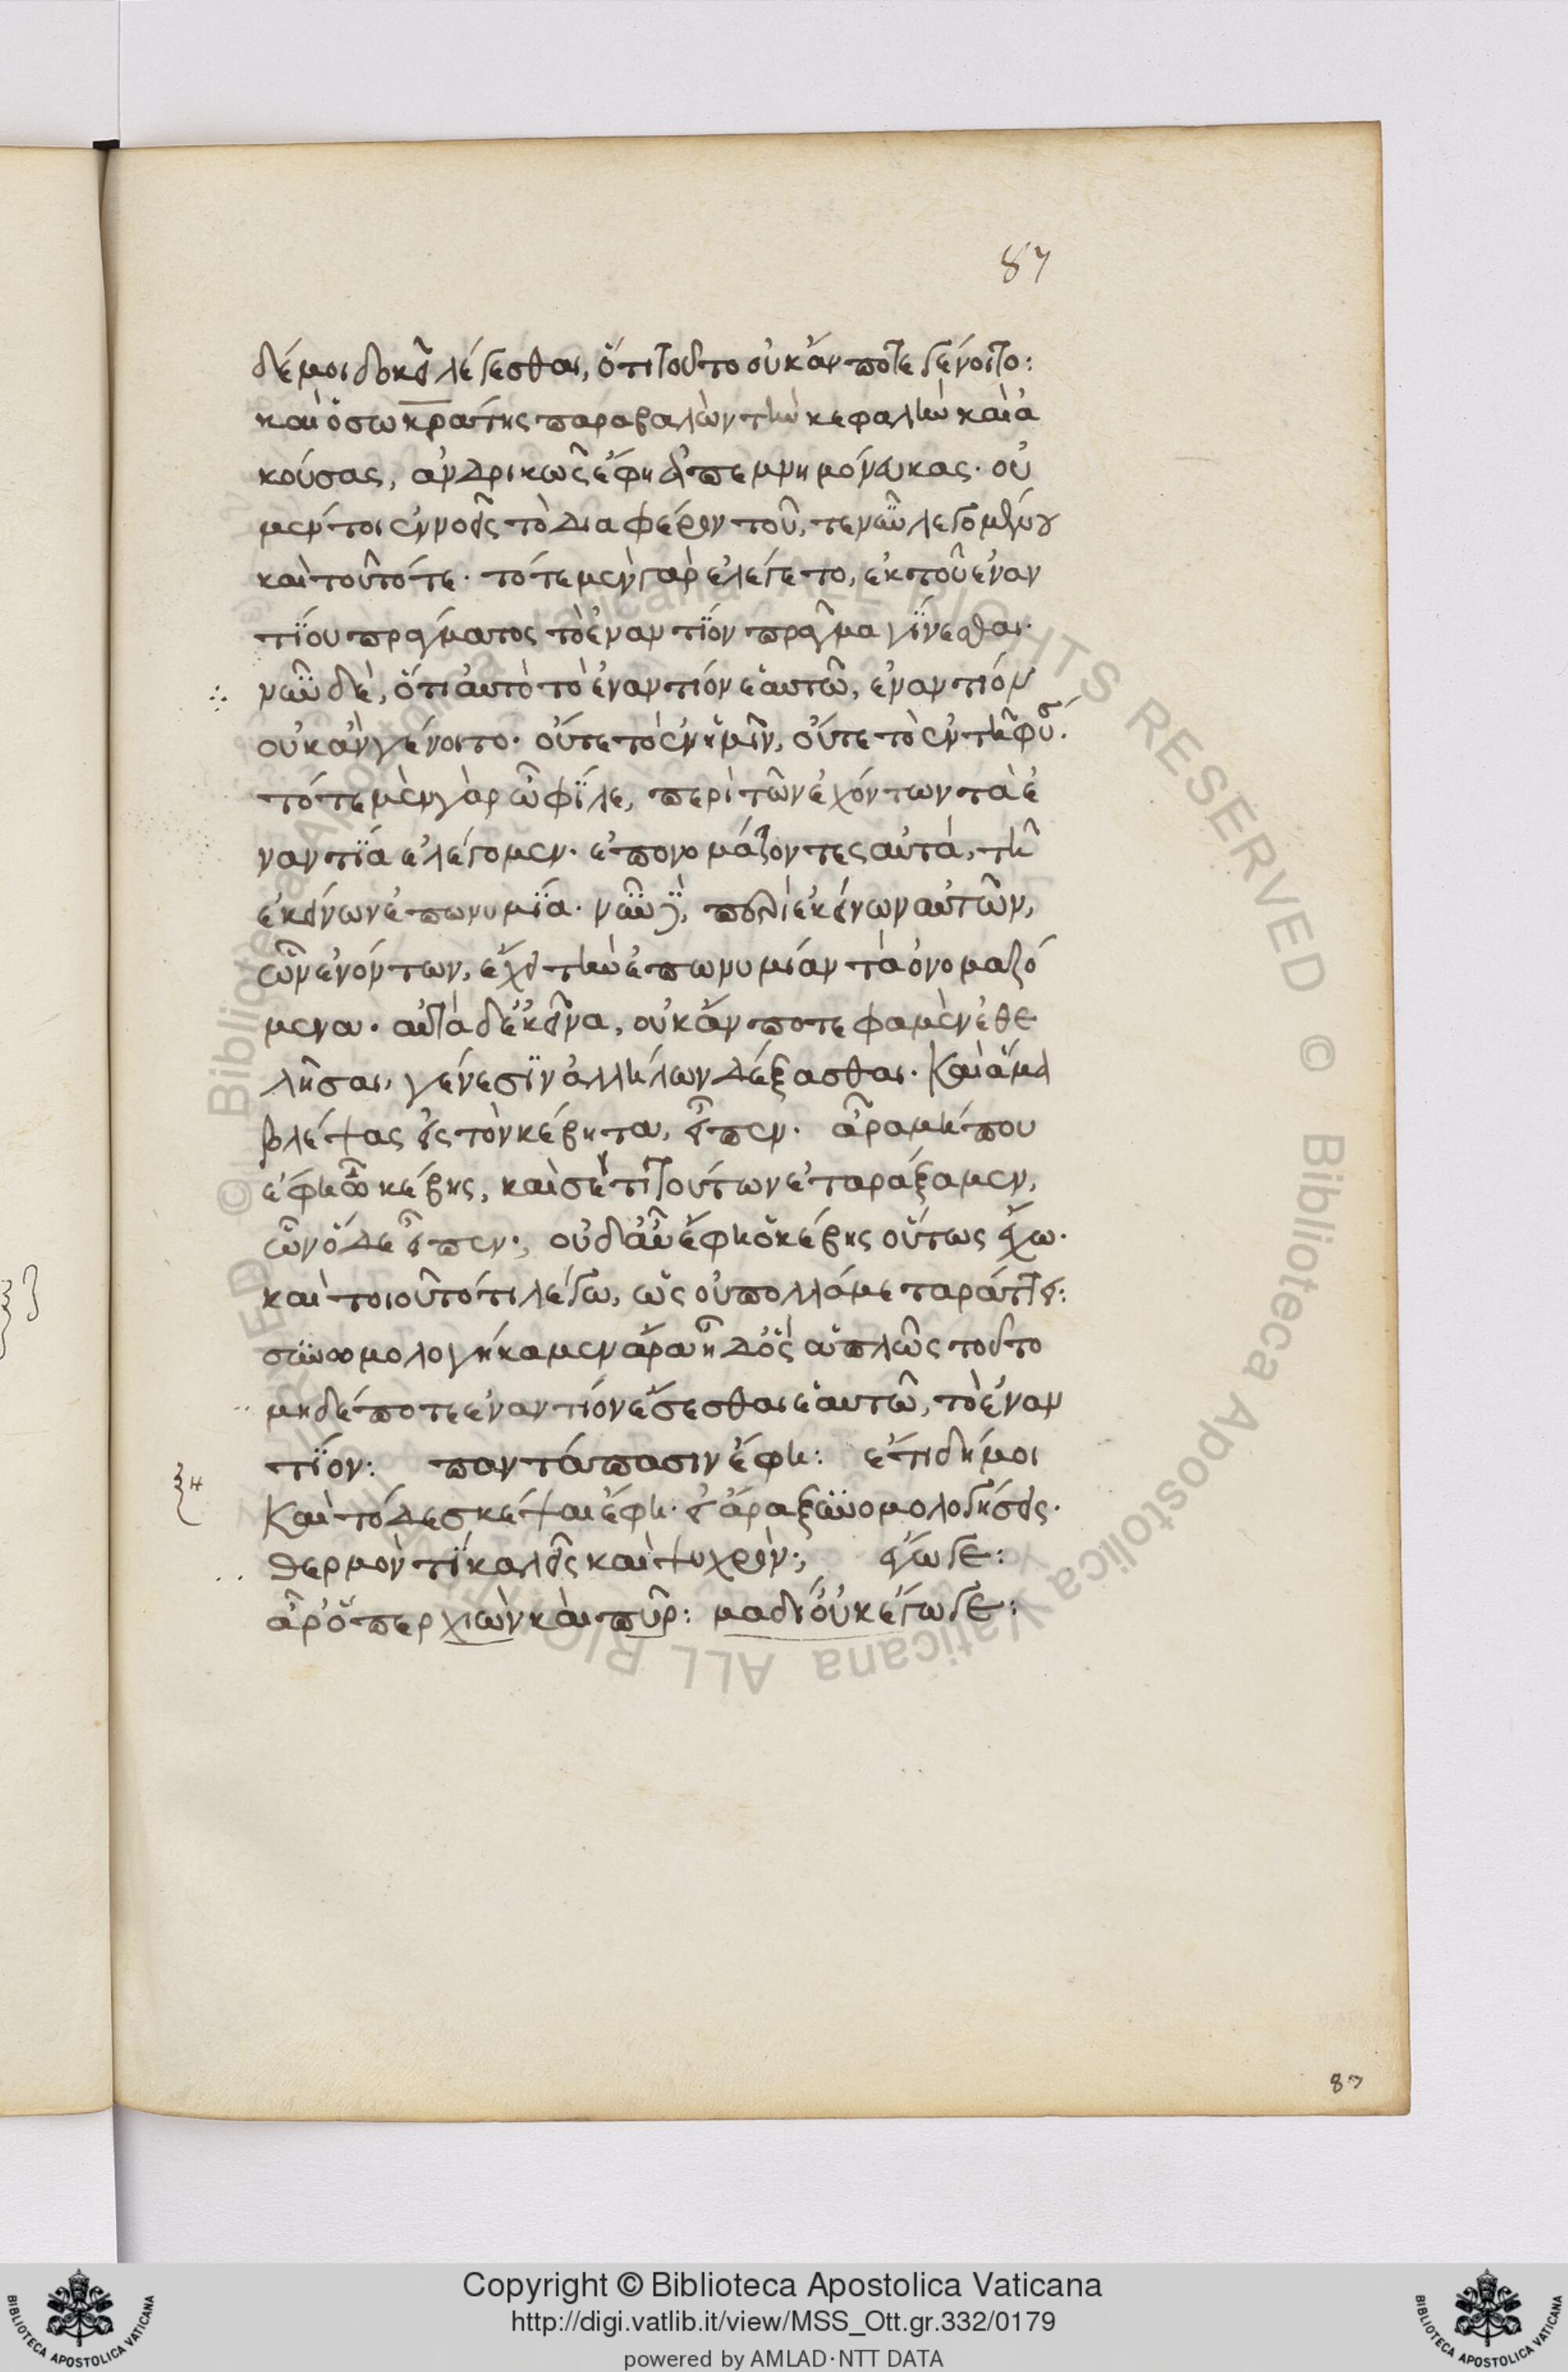 87
δέ μοι δοκεῖ λέγεσθαι, ὅτι τοῦτο οὐκ ἄν ποτε γένοιτο:
καὶ ὁ σωκράτης παραβαλὼν τὴν κεφαλὴν καὶ ἀ
κούσας, ἀνδρικῶς ἔφη ἀπεμνημόνευκας. οὐ
μέντοι ἐννοεῖς τὸ διαφέρον τοῦ, τε νῦν λεγομένου
καὶ τοῦ τότε. τότε μὲν γὰρ ἐλέγετο, ἐκ τοῦ ἐναν
τίου πράγματος τὸ ἐναντίον πρᾶγμα γίνεσθαι.
νῦν δὲ, ὅτι αὐτὸ τὸ ἐναντίον ἑαυτῶ, ἐναντίον
οὐκ ἂν γένοιτο. οὔτε τὸ ἐν ἡμῖν, οὔτε τὸ ἐν τῆ φύσ.
τότε μὲν γὰρ ὦ φίλε, περὶ τῶν ἐχόντων τὰ ἐ
ναντία ἐλέγομεν. ἐπονομάζοντες αὐτά, τῆ
ἐκείνων ἐπωνυμία. νῦν δὲ, περὶ ἐκείνων αὐτῶν,
ὧν ἐνόντων, ἔχει τὴν ἐπωνυμίαν τὰ ὀνομαζό
μενα. αὐτὰ δ' ἐκεῖνα, οὐκ ἄν ποτε φαμὲν ἐθε
λῆσαι, γένεσιν ἀλλήλων δέξασθαι. Καὶ ἅμα
βλέψας εἰς τὸν κέβητα, εἶπεν. ἆρα μή που
ἔφη ὦ κέβης, καὶ σέ τι τούτων ἐταράξαμεν,
ὧν ὅδε εἶπεν·, οὐδ' αὖ ἔφη ὁ κέβης οὕτως ἔχω.
καὶ τοι οὔτ ότι λέγω, ὡς οὐ πολλά με ταράττει:
συνωμολογήκαμεν ἄρα ἦ δ' ὃς ἁπλῶς τοῦτο
μηδέποτε ἐναντίον ἔσεσθαι ἑαυτῶ, τὸ ἐναν
τίον: παντάπασιν ἔφη: ἔτι δή μοι
Καὶ τόδε σκέψαι ἔφη. εἰ ἄρα ξυνομολογήσεις.
θερμόν τι καλεῖς καὶ ψυχρόν·, ἔγωγε:
ἆρ' ὅπερ χιὼν καὶ πῦρ: μὰ δι' οὐκ ἔγωγε:
87
Copyright © Biblioteca Apostolica Vaticana
http://digi.vatlib.it/view/MSS_Ott.gr.332/0179
powered by AMLAD·NTT DATA